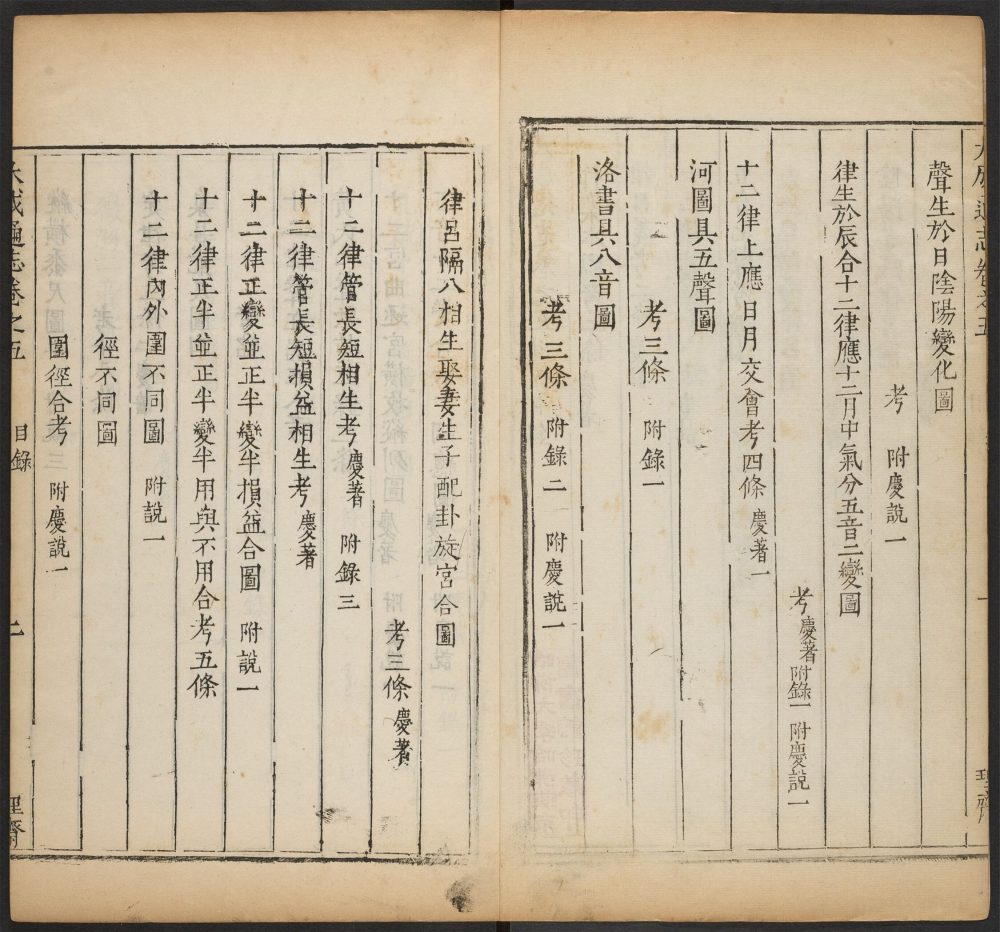 大成通志卷之五
一
理齋
聲生於日陰陽變化圖
考 附慶說一
律生於辰合十二律應十二月中氣分五音二變圖
考慶著附錄一附慶說一
十二律上應日月交會考四條慶著一
河圖具五聲圖
考三條 附錄一
洛書具八音圖
考三條 附錄二 附慶說一
律呂隔八相生娶妻生子配卦旋宮合圖
考三條慶著
十二律管長短相生考慶著 附錄三
十二律管長短損益相生考慶著
十二律正變並正半變半損益合圖 附說一
十二律正半並正半變半用與不用合考五條
十二律內外圍不同圖 附說一
徑不同圖
圍徑合考三 附慶說一
大成通志卷之五
目錄
二
理齋